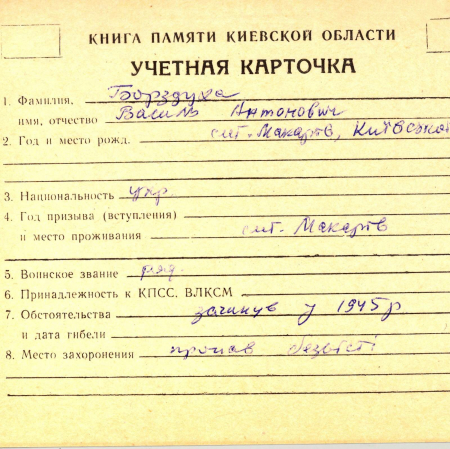 КНИГА ПАМЯТИ КИЕВСКОЙ ОБЛАСТИ
УЧЕТНАЯ КАРТОЧКА
1. Фамилия, Борздуха
имя, отчество Василь Антонович
2. Год и место рожд. смт. Макарів, Київської
3. Национальность укр.
4. Год призыва (вступления)
и место проживания смт. Макарів
5. Воинское звание ряд.
6. Принадлежность к КПСС, ВЛКСМ
7. Обстоятельства загинув у 1945 р
и дата гибели
8. Место захоронения пропав безвісті